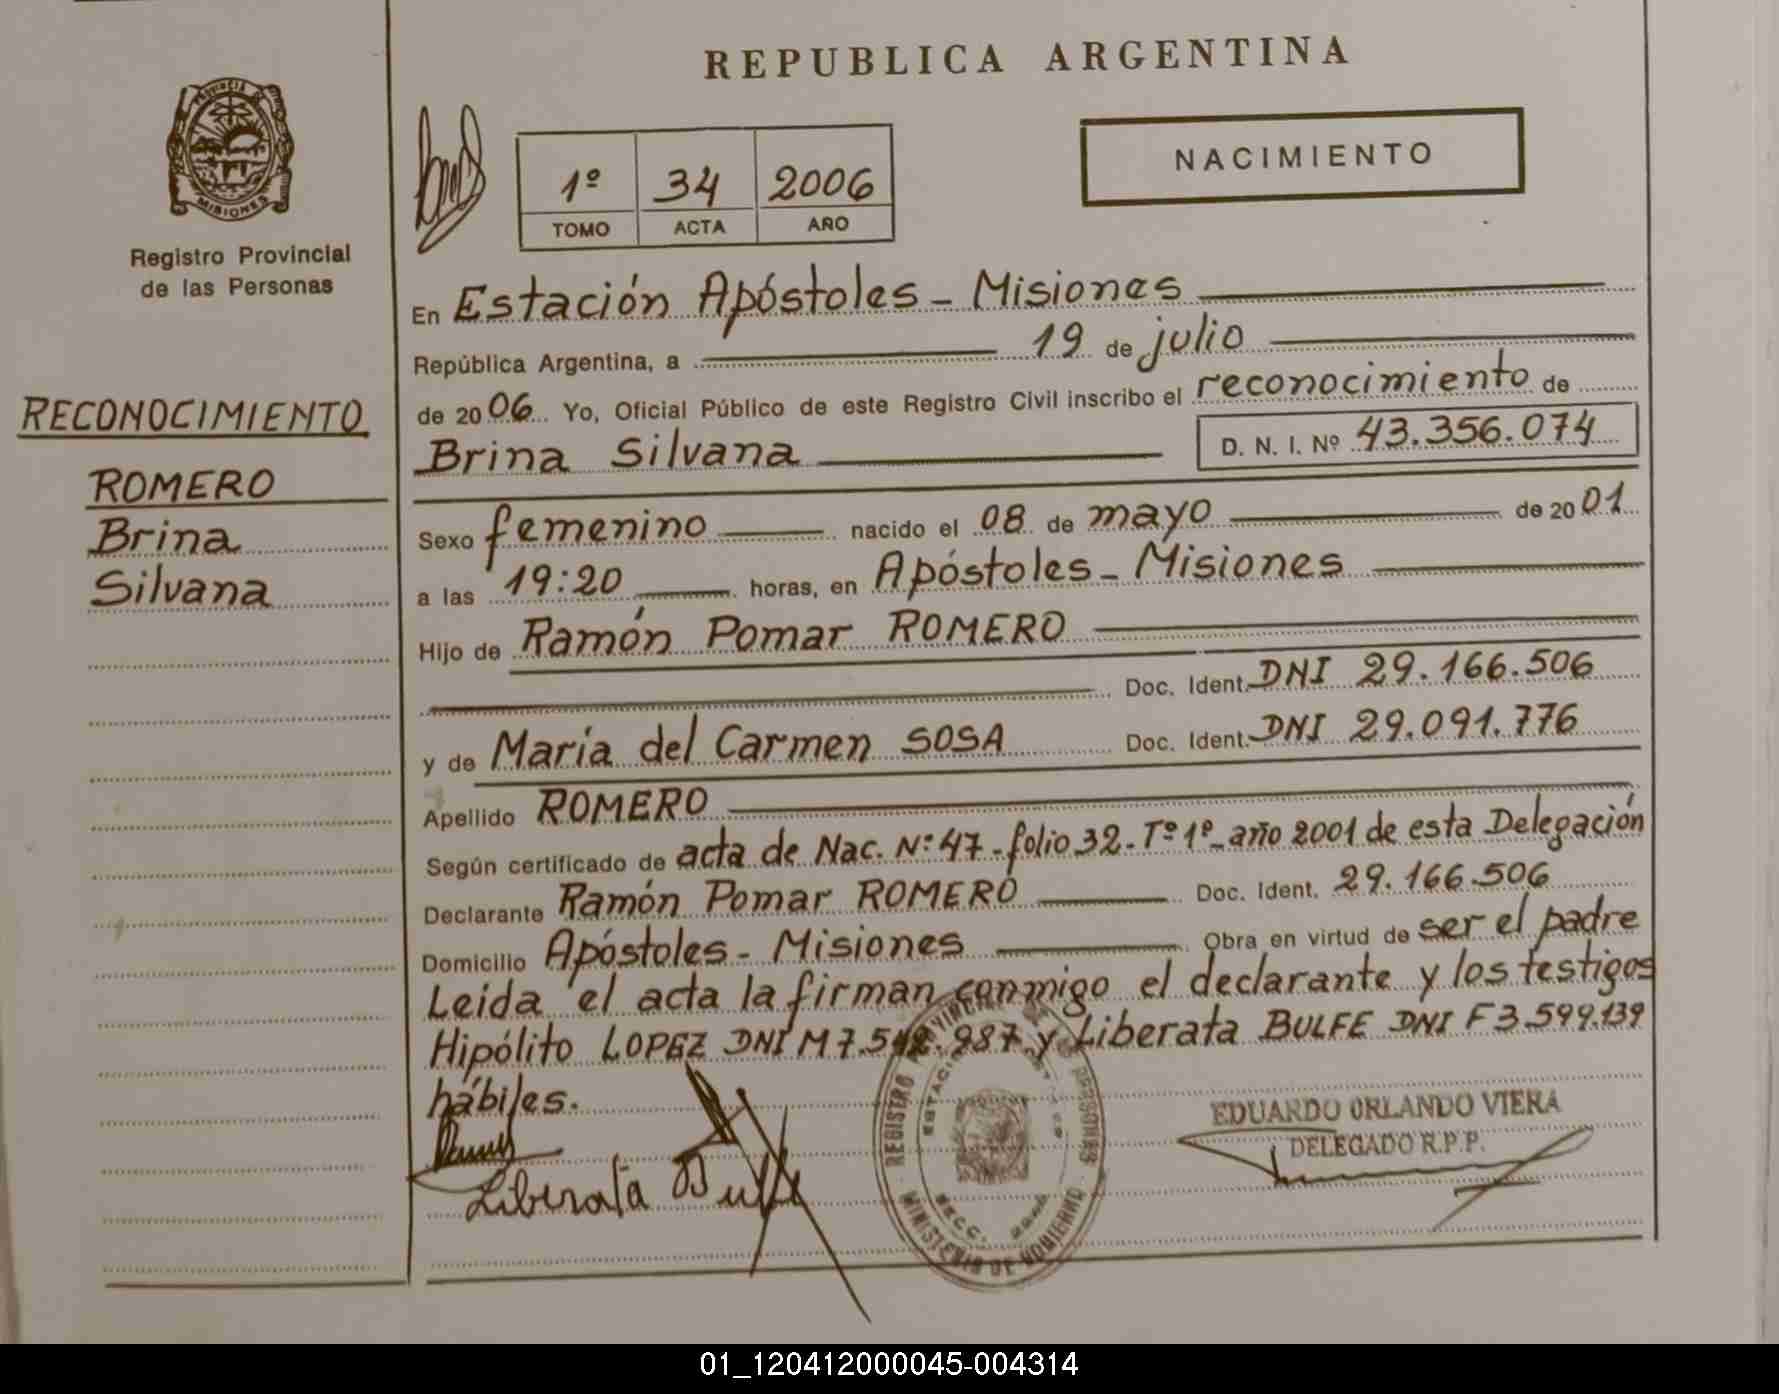 REPUBLICA ARGENTINA
PROVINCIA DE
MISIONES
Registro Provincial
de las Personas
1º 34 2006
TOMO ACTA AÑO
NACIMIENTO
RECONOCIMIENTO
ROMERO
Brina
Silvana
En Estación Apóstoles - Misiones
República Argentina, a 19 de julio
de 2006 Yo, Oficial Público de este Registro Civil inscribo el reconocimiento de
Brina Silvana D. N. I. Nº 43.356.074
Sexo femenino nacido el 08 de mayo de 2001
a las 19:20 horas, en Apóstoles - Misiones
Hijo de Ramón Pomar ROMERO
Doc. Ident. DNI 29.166.506
y de María del Carmen SOSA Doc. Ident. DNI 29.091.776
Apellido ROMERO
Según certificado de acta de Nac. Nº 47 - folio 32 - Tº 1º - año 2001 de esta Delegación
Declarante Ramón Pomar ROMERO Doc. Ident. 29.166.506
Domicilio Apóstoles - Misiones Obra en virtud de ser el padre
Leída el acta la firman conmigo el declarante y los testigos
Hipólito LOPEZ DNI M 7.548.987 y Liberata BULFE DNI F 3.599.139
hábiles.
Liberata Bulfe
REGISTRO PROVINCIAL DE LAS PERSONAS
MINISTERIO DE GOBIERNO
EDUARDO ORLANDO VIERA
DELEGADO R.P.P.
01_120412000045-004314